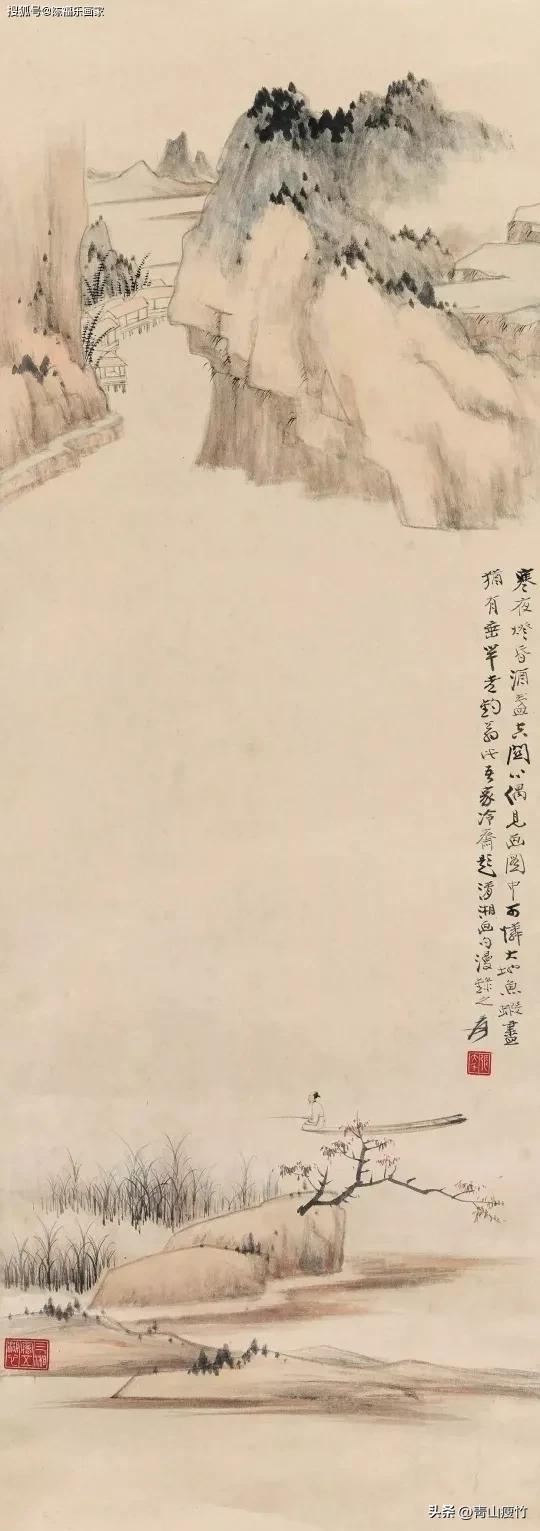 搜狐号@陈福乐画家
寒夜燈昏酒盞空關心偶見画圖中可憐大地魚蝦盡
猶有垂竿老釣翁此吾家冷齋題瀟湘画句漫録之
爰
头条 @青山瘦竹